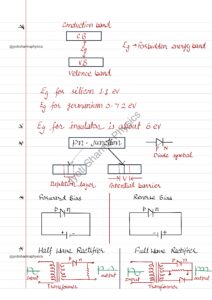 Conduction band
@jyotisharmaphysics
C.B
Eg
Eg → forbidden energy band
V.B
Valence band
Eg for silicon 1.1 eV
Eg for germanium 0.72 eV
Eg for insulator is about 6 eV
@jyotisharmaphysics
Pn-junction
Diode symbol
Depletion layer
Potential barrier
Forward Bias
Reverse Bias
P
n
P
n
Half Wave Rectifier
Full Wave Rectifier
input
output
Transformer
input
output
Transformer
Jyoti Sharma Physics